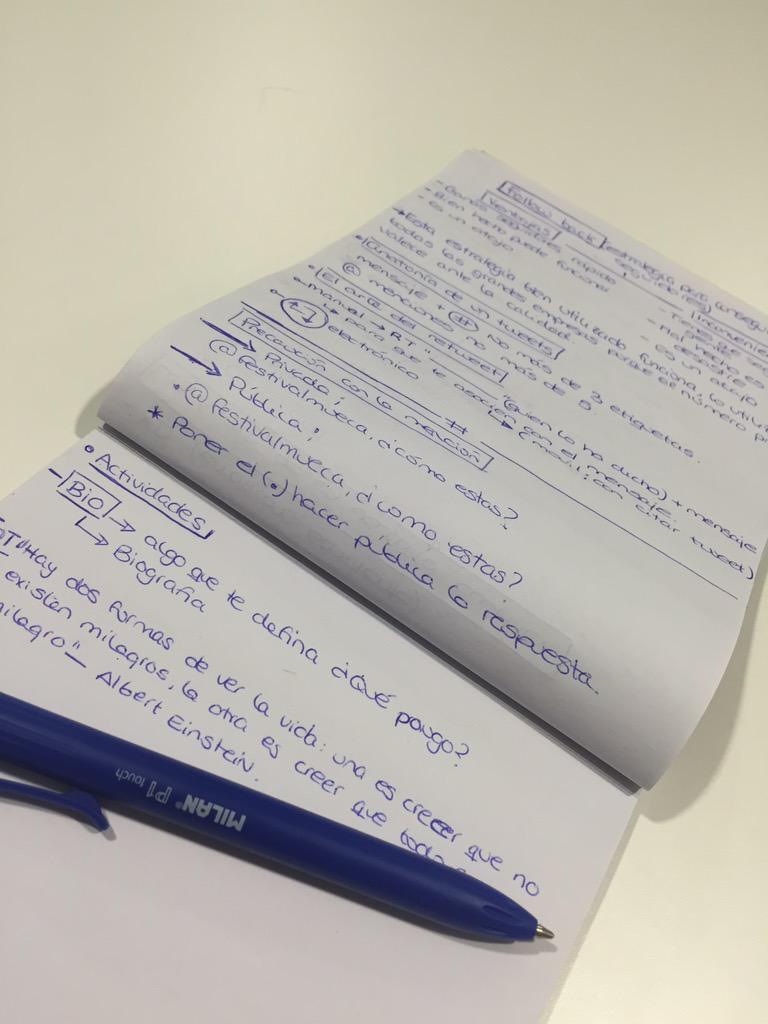 Follow back (estrategia para conseguir
seguidores)
Ventajas
Inconvenien
- Ganas seguidores rápido
- Bien hecho puede funcionar
- es un atajo
→ Esta estrategia bien utilizada funciona, lo utili
todas las grandes empresas porque el número p
valece ante la calidad
• Anatomía de un tweets
mensaje + # no más de 3 etiquetas
@ menciones no más de
• El arte del retweet
• manual → RT "quien lo ha dicho) + mensaje
→ para que te asocien con el mensaje.
electrónico → Email: con citar tweet)
Precaución con la mención
→ Privada:
@festivalmueca, ¿cómo estas?
→ Pública:
.@festivalmueca, ¿como estas?
* Poner el (.) hacer pública la respuesta.
• Actividades
- Bio → algo que te defina ¿Qué pongo?
↳ Biografia
Hay dos formas de ver la vida: una es creer que no
existen milagros, la otra es creer que todo
milagro" - Albert Einstein.
MILAN® P1 touch